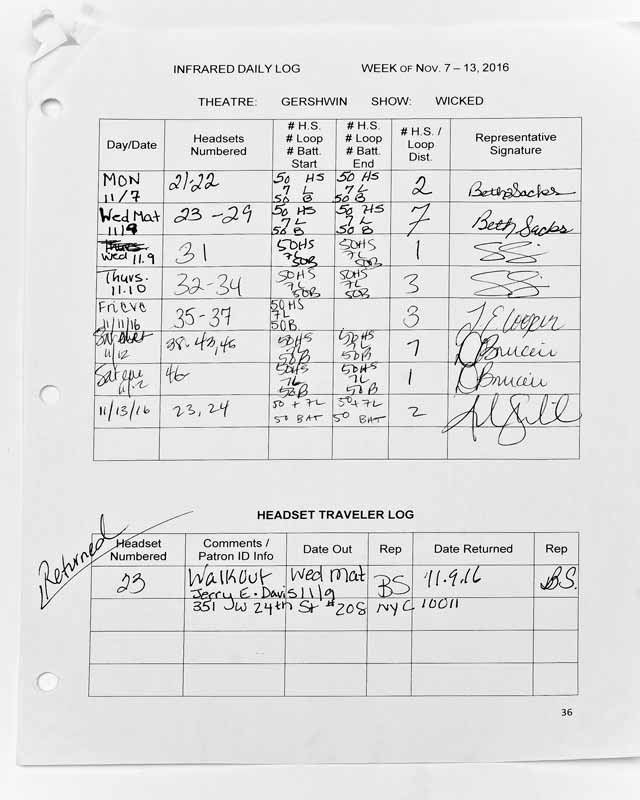 INFRARED DAILY LOG WEEK OF NOV. 7 – 13, 2016
THEATRE: GERSHWIN SHOW: WICKED
Day/Date Headsets Numbered # H.S. # Loop # Batt. Start # H.S. # Loop # Batt. End # H.S. / Loop Dist. Representative Signature
MON 11/7 21-22 50 HS 7 L 50 B 50 HS 7 L 50 B 2 Beth Sacks
Wed Mat 11/9 23-29 50 HS 7 L 50 B 50 HS 7 L 50 B 7 Beth Sacks
Wed 11.9 31 50HS 7L 50B 50HS 7L 50B 1
Thurs. 11.10 32-34 50HS 7L 50B 50HS 7L 50B 3
Frieve 11/11/16 35-37 50HS 7L 50B 3 J E Cooper
11/12 38-43,45 50HS 7L 50B 50HS 7L 50B 7
Sat eve 11/12 46 50HS 7L 50B 50HS 7L 50B 1
11/13/16 23, 24 50 + 7L 50 BAT 50 + 7L 50 BAT 2
HEADSET TRAVELER LOG
Returned
Headset Numbered Comments / Patron ID Info Date Out Rep Date Returned Rep
23 Walkout Wed Mat BS 11.9.16 B.S.
Jerry E. Davis 11/9
351 W 24th St #20S NYC 10011
36